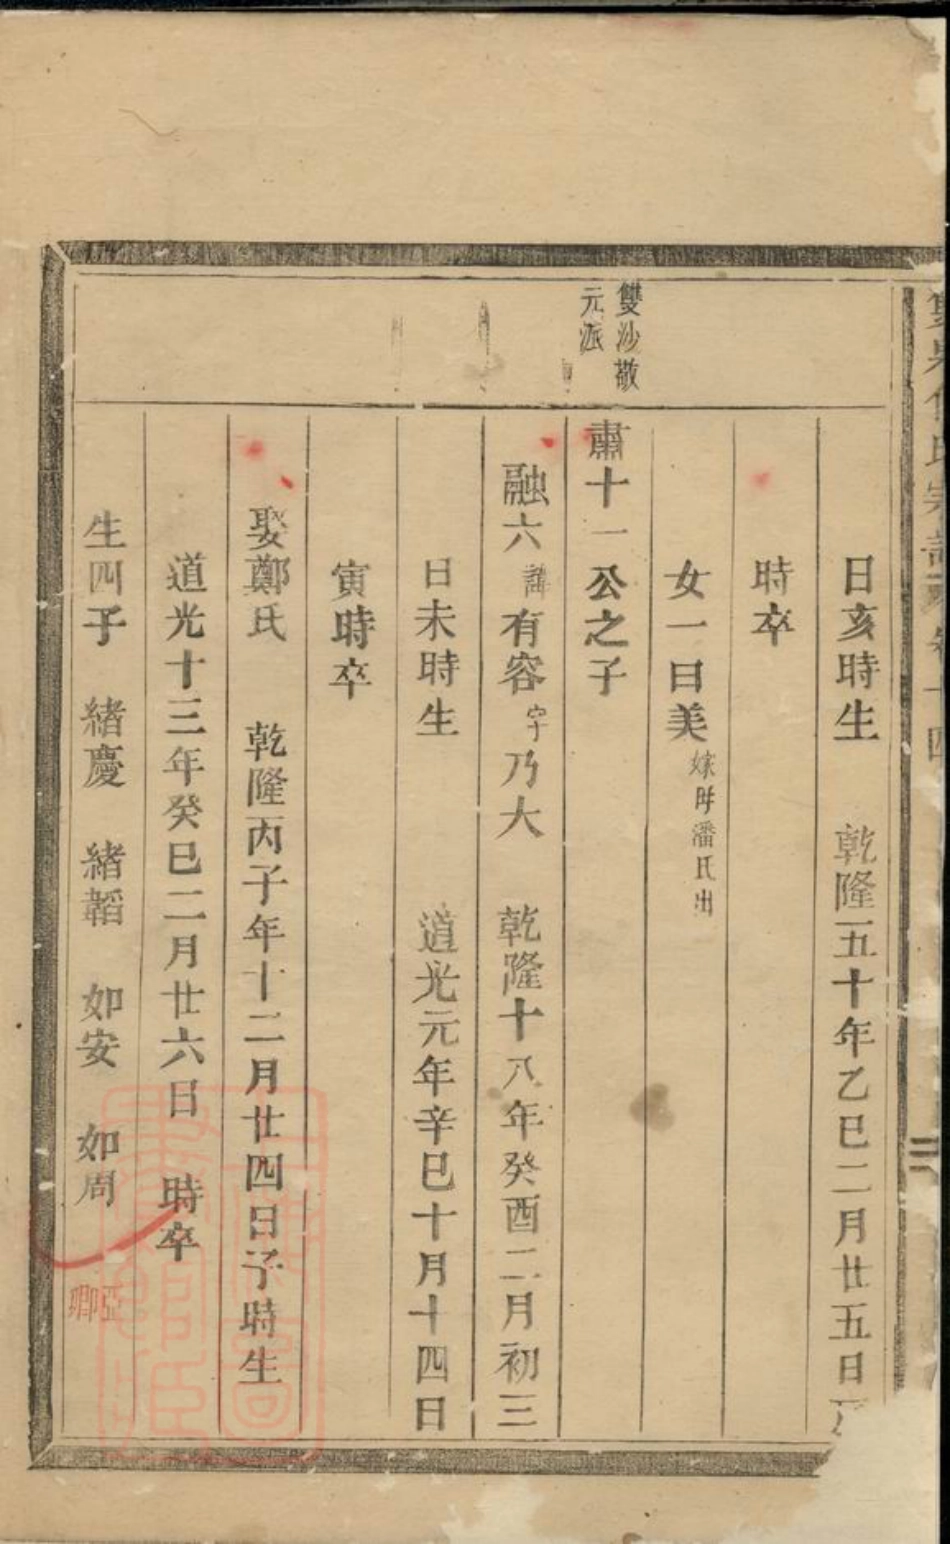 日亥時生　乾隆五十年乙巳二月廿五日
時卒
女一曰美 嫁 潘氏出
雙沙敬
元派
肅十一公之子
融六 諱 有容 字 乃大　乾隆十八年癸酉二月初三
日未時生　道光元年辛巳十月十四日
寅時卒
娶鄭氏　乾隆丙子年十二月廿四日子時生
道光十三年癸巳二月廿六日　時卒
生四子　緒慶　緒韜　如安　如周
亞卿